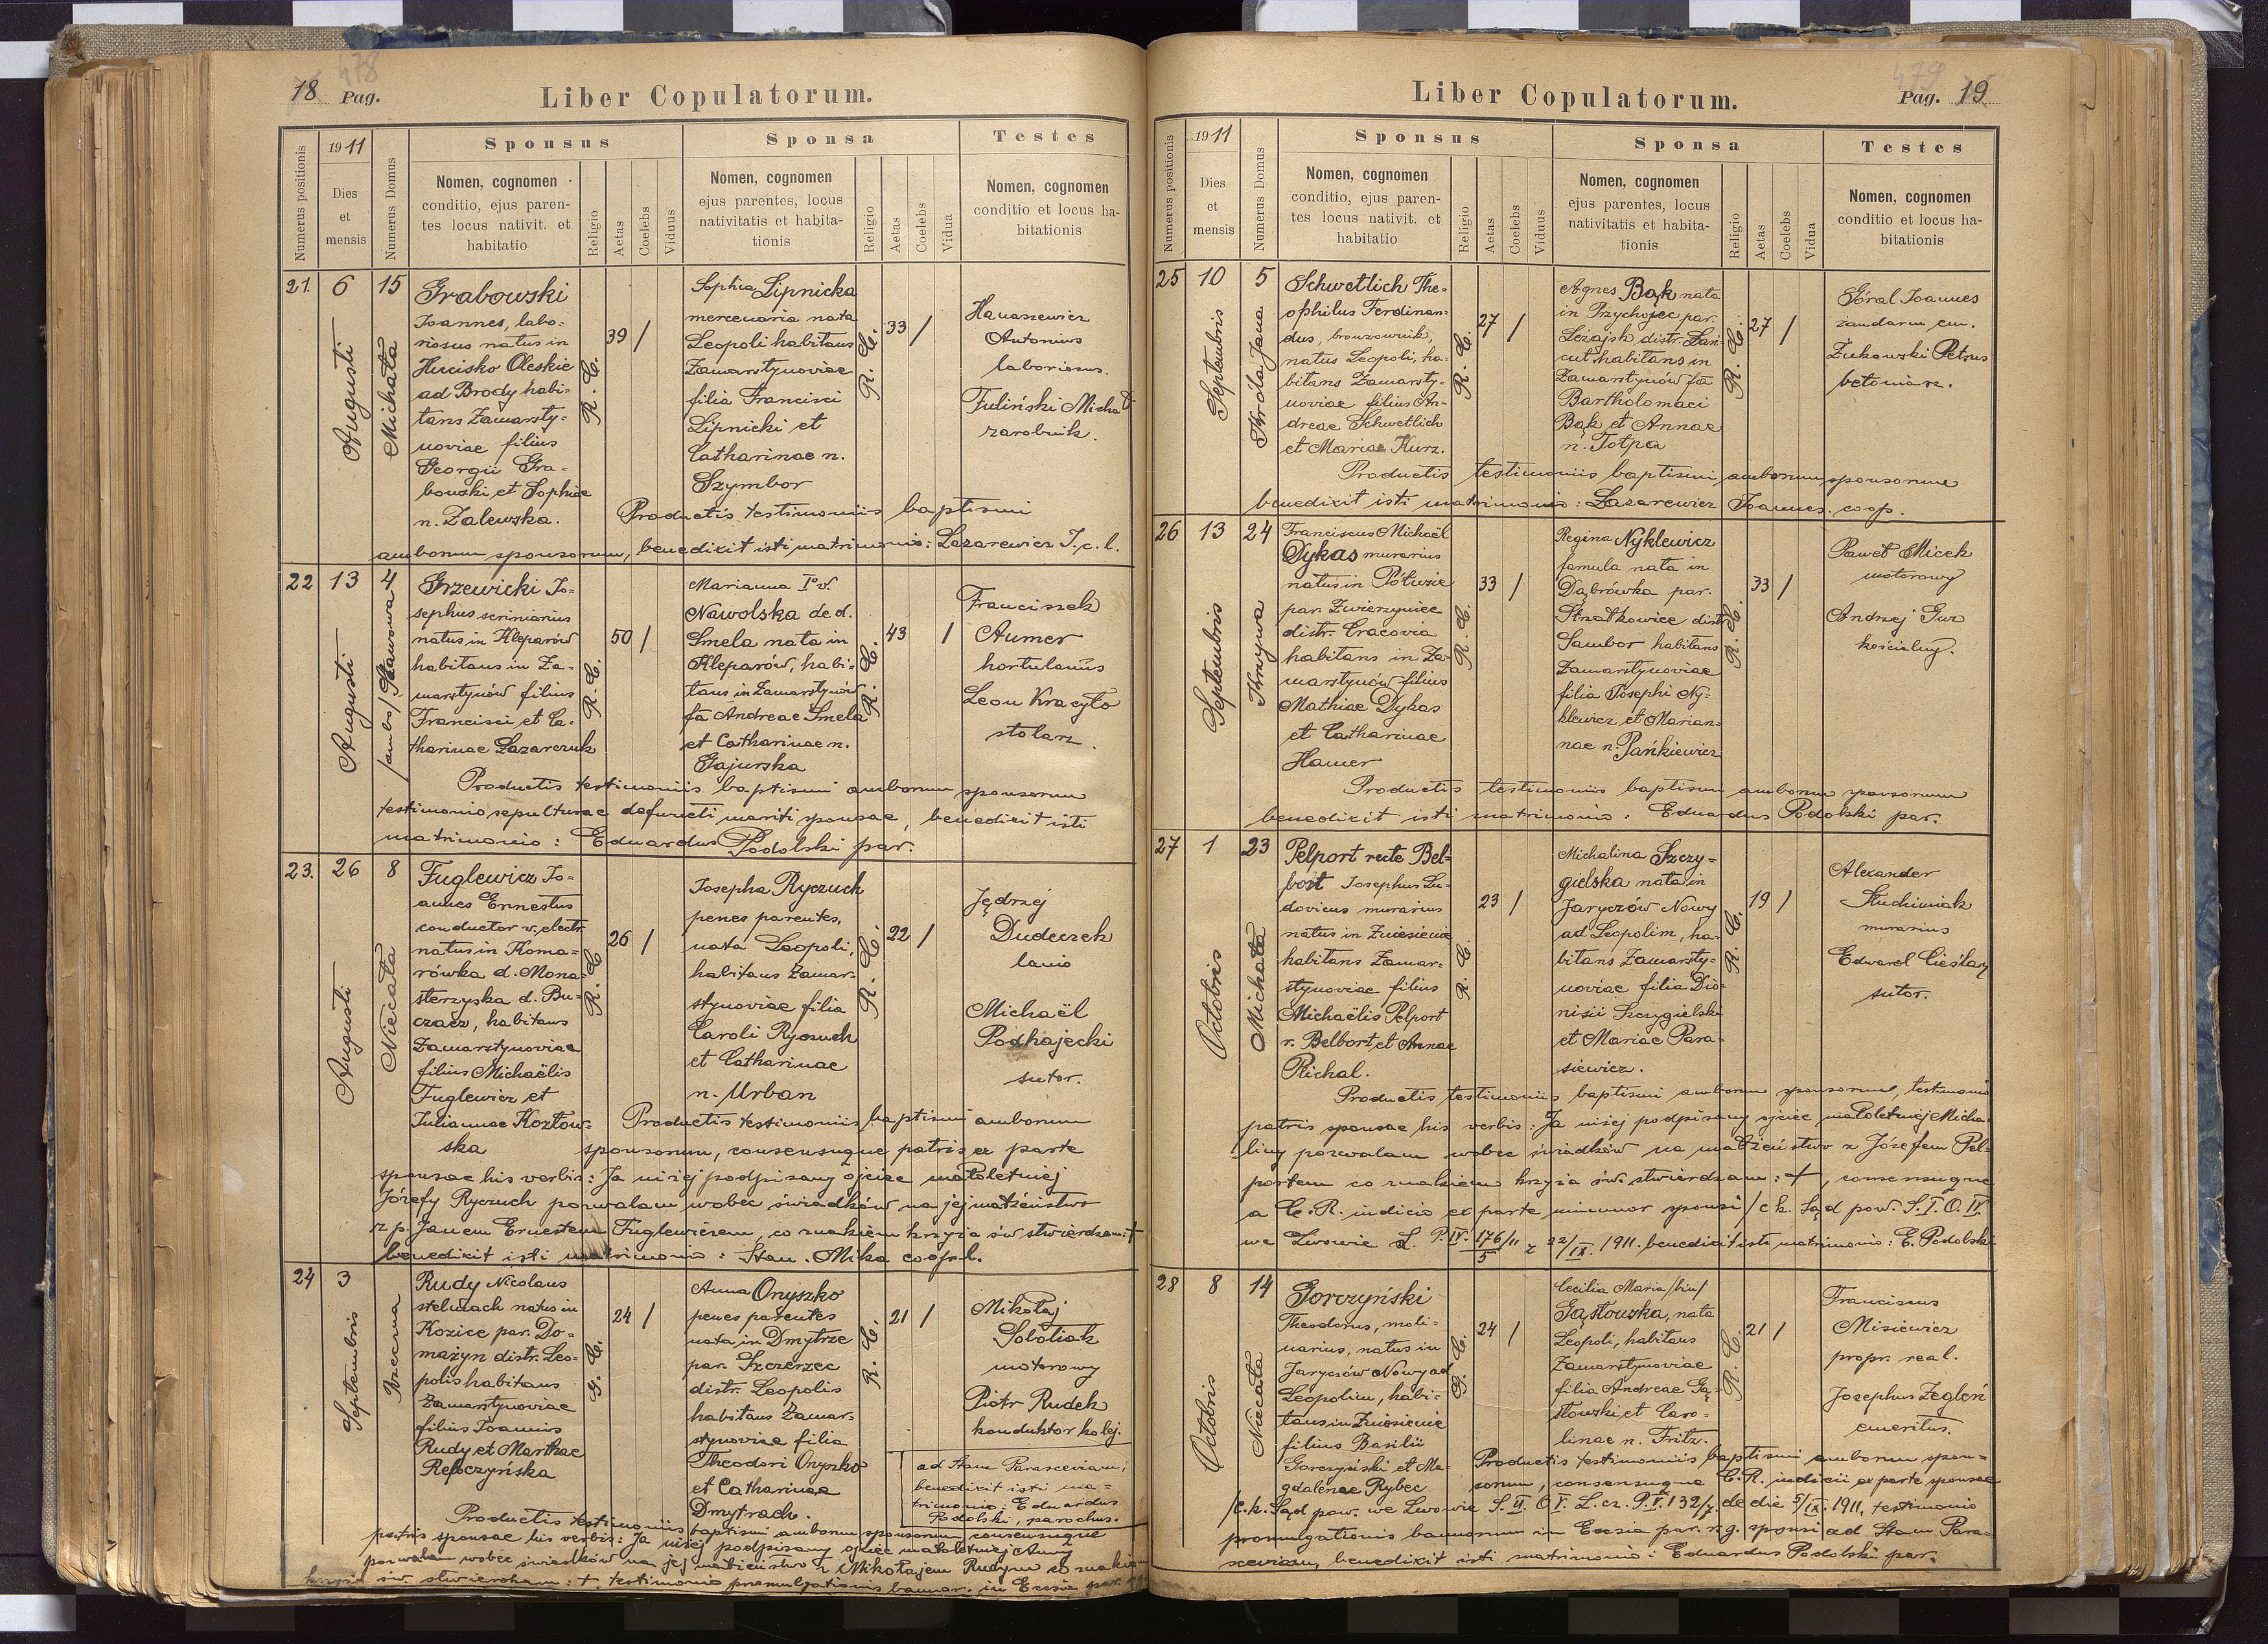 18 Pag.
478
Liber Copulatorum.
Numerus positionis
1911
Dies
et
mensis
Numerus Domus
Sponsus
Nomen, cognomen
conditio, ejus paren-
tes locus nativit. et
habitatio
Religio
Aetas
Coelebs
Viduus
Sponsa
Nomen, cognomen
ejus parentes, locus
nativitatis et habita-
tionis
Religio
Aetas
Coelebs
Vidua
Testes
Nomen, cognomen
conditio et locus ha-
bitationis
21. 6 Augusti
15 Michała
Grabowski
Joannes, labo-
riosus natus in
Hucisko Oleskie
ad Brody habi-
tans Zamarsty-
noviae filius
Georgii Gra-
bowski et Sophiae
n. Zalewska.
R. C.
39 /
Sophia Lipnicka
mercenaria nata
Leopoli habitans
Zamarstynoviae
filia Francisci
Lipnicki et
Catharinae n.
Szymbor
R. C.
33 /
Hanaszewicz
Antonius
laboriosus.
Juliński Michał
zarobnik.
Productis testimoniis baptismi
amborum sponsorum, benedixit isti matrimonio: Lazarewicz J. c. l.
22 13 Augusti
4 /ambo/ Stawowa
Grzewicki Jo-
sephus scriniarius
natus in Kleparów
habitans in Za-
marstynów filius
Francisci et Ca-
tharinae Lazarczuk
R. C.
50 /
Marianna I° v.
Nawolska de d.
Smela nata in
Kleparów, habi-
tans in Zamarstynów
fa Andreae Smela
et Catharinae n.
Gajurska
R. C.
43 /
Franciszek
Aumer
hortulanus
Leon Kraczyło
stolarz.
Productis testimoniis baptismi amborum sponsorum
testimonio sepulturae defuncti mariti sponsae, benedixit isti
matrimonio: Eduardus Podolski par.
23. 26 Augusti
8 Niecała
Fuglewicz Jo-
annes Ernestus
conductor v. electr.
natus in Koma-
rówka d. Mona-
sterzyska d. Bu-
czacz, habitans
Zamarstynoviae
filius Michaëlis
Fuglewicz et
Juliannae Kozłow-
ska
R. C.
26 /
Josepha Ryczuch
penes parentes,
nata Leopoli,
habitans Zamar-
stynoviae filia
Caroli Ryczuch
et Catharinae
n. Urban
R. C.
22 /
Jędrzej
Dudeczek
lanio
Michaël
Podhajecki
sutor.
Productis testimoniis baptismi amborum
sponsorum, consensuque patris ex parte
sponsae his verbis: Ja niżej podpisany ojciec małoletniej
Józefy Ryczuch pozwalam wobec świadków na jej małżeństwo
z p. Janem Ernestem Fuglewiczem, co znakiem krzyża św stwierdzam: +
benedixit isti matrimonio: Stan. Mika coop. l.
24 3 Septembris
Rudy Nicolaus
stelmach natus in
Kozice par. Do-
mażyn distr. Leo-
polis habitans
Zamarstynoviae
filius Joannis
Rudy et Marthae
Repczyńska
G. C.
24 /
Anna Onyszko
penes parentes
nata in Dmytrze
par. Szczerzec
distr. Leopolis
habitans Zamar-
stynoviae filia
Theodori Onyszko
et Catharinae
Dmytrach.
R. C.
21 /
Mikołaj
Soboliak
motorowy
Piotr Rudek
konduktor kolej.
ad Stam Parasceviam,
benedixit isti ma-
trimonio: Eduardus
Podolski, parochus.
Productis testimoniis baptismi amborum sponsorum consensuque
patris sponsae his verbis: Ja niżej podpisany ojciec małoletniej Anny
pozwalam wobec świadków na jej małżeństwo z Mikołajem Rudym co znakiem
krzyża św. stwierdzam: + testimonio promulgationis bannor. in Eccsia par.
479
Pag. 19
Liber Copulatorum.
Numerus positionis
1911
Dies
et
mensis
Numerus Domus
Sponsus
Nomen, cognomen
conditio, ejus paren-
tes locus nativit. et
habitatio
Religio
Aetas
Coelebs
Viduus
Sponsa
Nomen, cognomen
ejus parentes, locus
nativitatis et habita-
tionis
Religio
Aetas
Coelebs
Vidua
Testes
Nomen, cognomen
conditio et locus ha-
bitationis
25 10 Septembris
5 Króla Jana
Schwetlich The-
ophilus Ferdinan-
dus, bronzownik,
natus Leopoli, ha-
bitans Zamarsty-
noviae filius An-
dreae Schwetlich
et Mariae Kurz.
R. C.
27 /
Agnes Bąk nata
in Przychojec par.
Leżajsk distr. Łań-
cut habitans in
Zamarstynów fa
Bartholomaei
Bąk et Annae
n. Totpa
R. C.
27 /
Góral Joannes
żandarm em.
Żukowski Petrus
betoniarz.
Productis testimoniis baptismi amborum sponsorum
benedixit isti matrimonio: Lazarewicz Joannes. coop.
26 13 Septembris
24 Krzywa
Franciscus Michaël
Dykas murarius
natus in Półwsie
par. Zwierzyniec
distr. Cracovia
habitans in Za-
marstynów filius
Mathiae Dykas
et Catharinae
Hamer
R. C.
33 /
Regina Nyklewicz
famula nata in
Dąbrówka par.
Strzałkowice distr
Sambor habitans
Zamarstynoviae
filia Josephi Ny-
klewicz et Marian-
nae n. Pańkiewicz
R. C.
33 /
Paweł Micek
motorowy
Andrzej Guz
kościelny.
Productis testimoniis baptismi amborum sponsorum
benedixit isti matrimonio: Eduardus Podolski par.
27 1 Octobris
23 Michała
Pelport recte Bel-
bort Josephus Lu-
dovicus murarius
natus in Zniesienie
habitans Zamar-
stynoviae filius
Michaëlis Pelport
r. Belbort, et Annae
Richal.
R. C.
23 /
Michalina Szczy-
gielska nata in
Jaryczów Nowy
ad Leopolim, ha-
bitans Zamarsty-
noviae filia Dio-
nisii Szczygielski
et Mariae Para-
siewicz.
R. C.
19 /
Alexander
Studziniak
murarius
Edward Cieślay
sutor.
Productis testimoniis baptismi amborum sponsorum, testimonio
patris sponsae his verbis: Ja niżej podpisany ojciec małoletniej Micha-
liny pozwalam wobec świadków na małżeństwo z Józefem Pel-
portem co znakiem krzyża św. stwierdzam: +, consensuque
a C. R. iudicio ex parte minor sponsi /c k. Sąd pow. S. I. O. IV.
we Lwowie L. P. IV. 176/11 5 z 22/IX. 1911. benedixit isti matrimonio: E. Podolski
28 8 Octobris
14 Niecała
Gorczyński
Theodorus, moli-
narius, natus in
Jaryczów Nowy ad
Leopolim, habi-
tans in Zniesienie
filius Basilii
Gorczyński et Ma-
gdalenae Rybec
G. C.
24 /
Cecilia Maria /bin/
Gąstowska, nata
Leopoli, habitans
Zamarstynoviae
filia Andreae Gą-
stowski et Caro-
linae n. Fritz.
R. C.
21 /
Franciscus
Misiewicz
propr. real.
Josephus Żegleń
emeritus.
Productis testimoniis baptismi amborum spon-
sorum, consensuque C. R. iudicii ex parte sponsae
/c. k. Sąd pow. we Lwowie S. II. O V. L. cz. P. V. 132/7. de die 5/IX. 1911, testimonio
promulgationis bannorum in Eccsia par. r. g. sponsi ad Stam Para-
sceviam, benedixit isti matrimonio: Eduardus Podolski par.